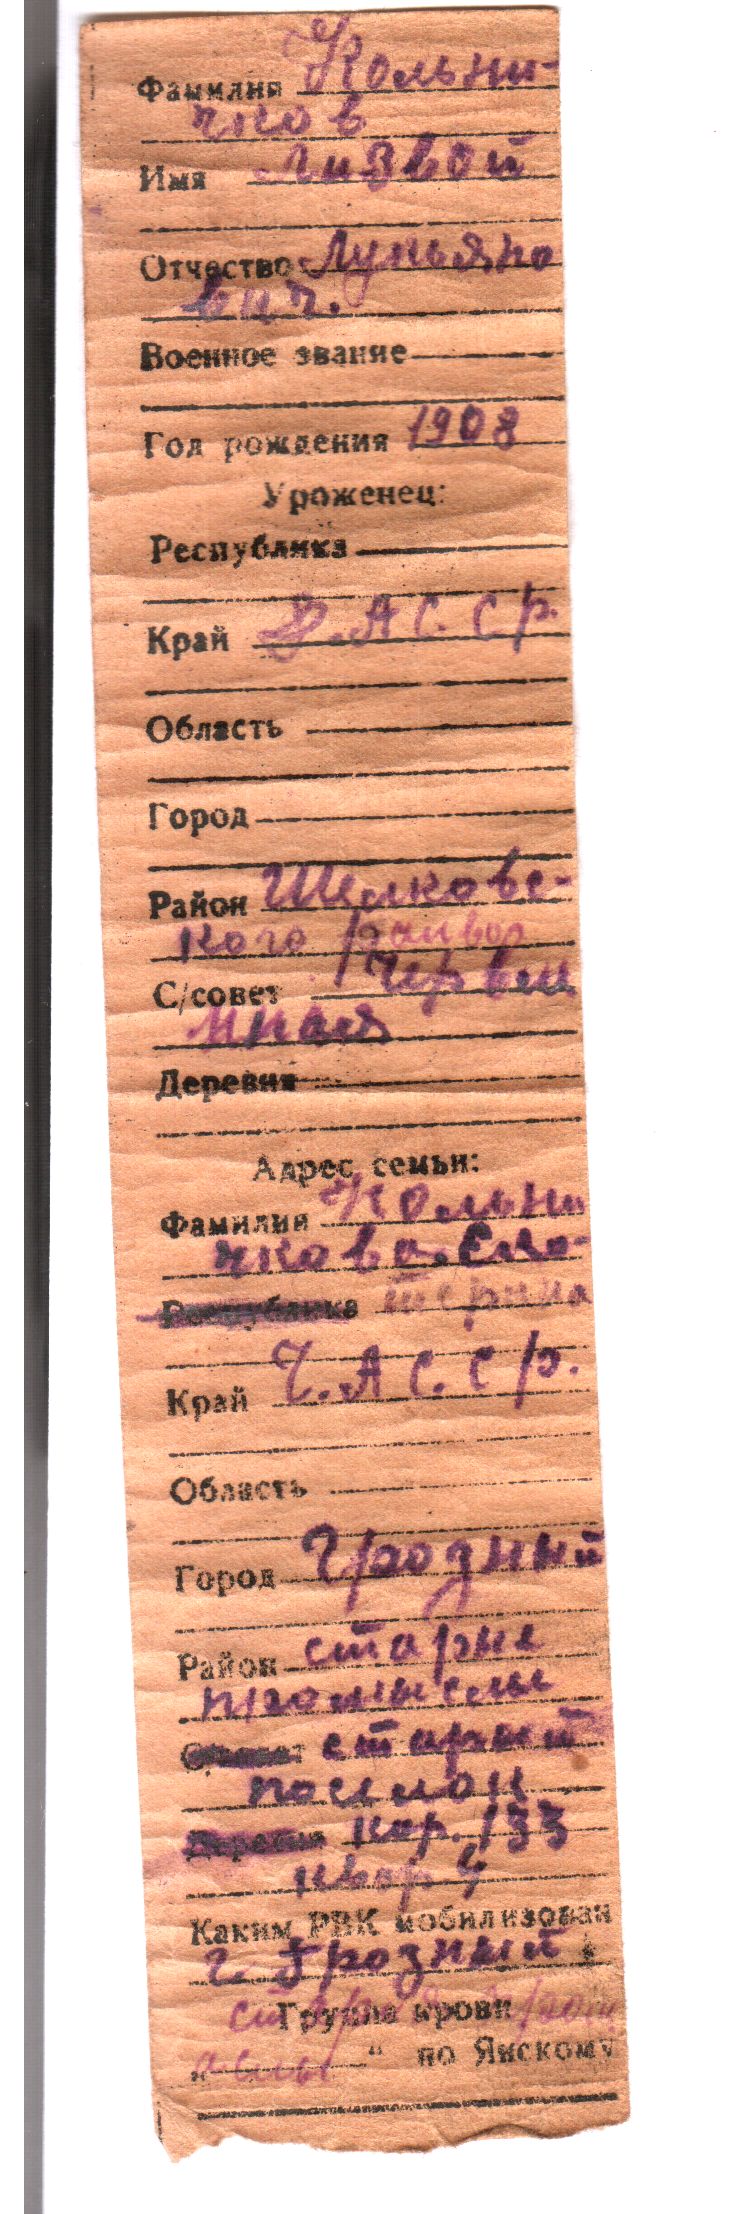 Фамилия Кольни-
чков
Имя Лизвой
Отчество Лукьяно
вич.
Военное звание
Год рождения 1908
Уроженец:
Республика
Край Д.АС.СР.
Область
Город
Район Шелковс-
кого
С/совет Червл
нная
Деревня
Адрес семьи:
Фамилия Кольни
чкова Ека-
Республика терина
Край Ч.АС.СР.
Область
Город Грозный
Район старые
промыслы
старый
посёлок
Деревня кор. 133
квар 4
Каким РВК мобилизован
г. Грозный
Группа крови
„ “ по Янскому